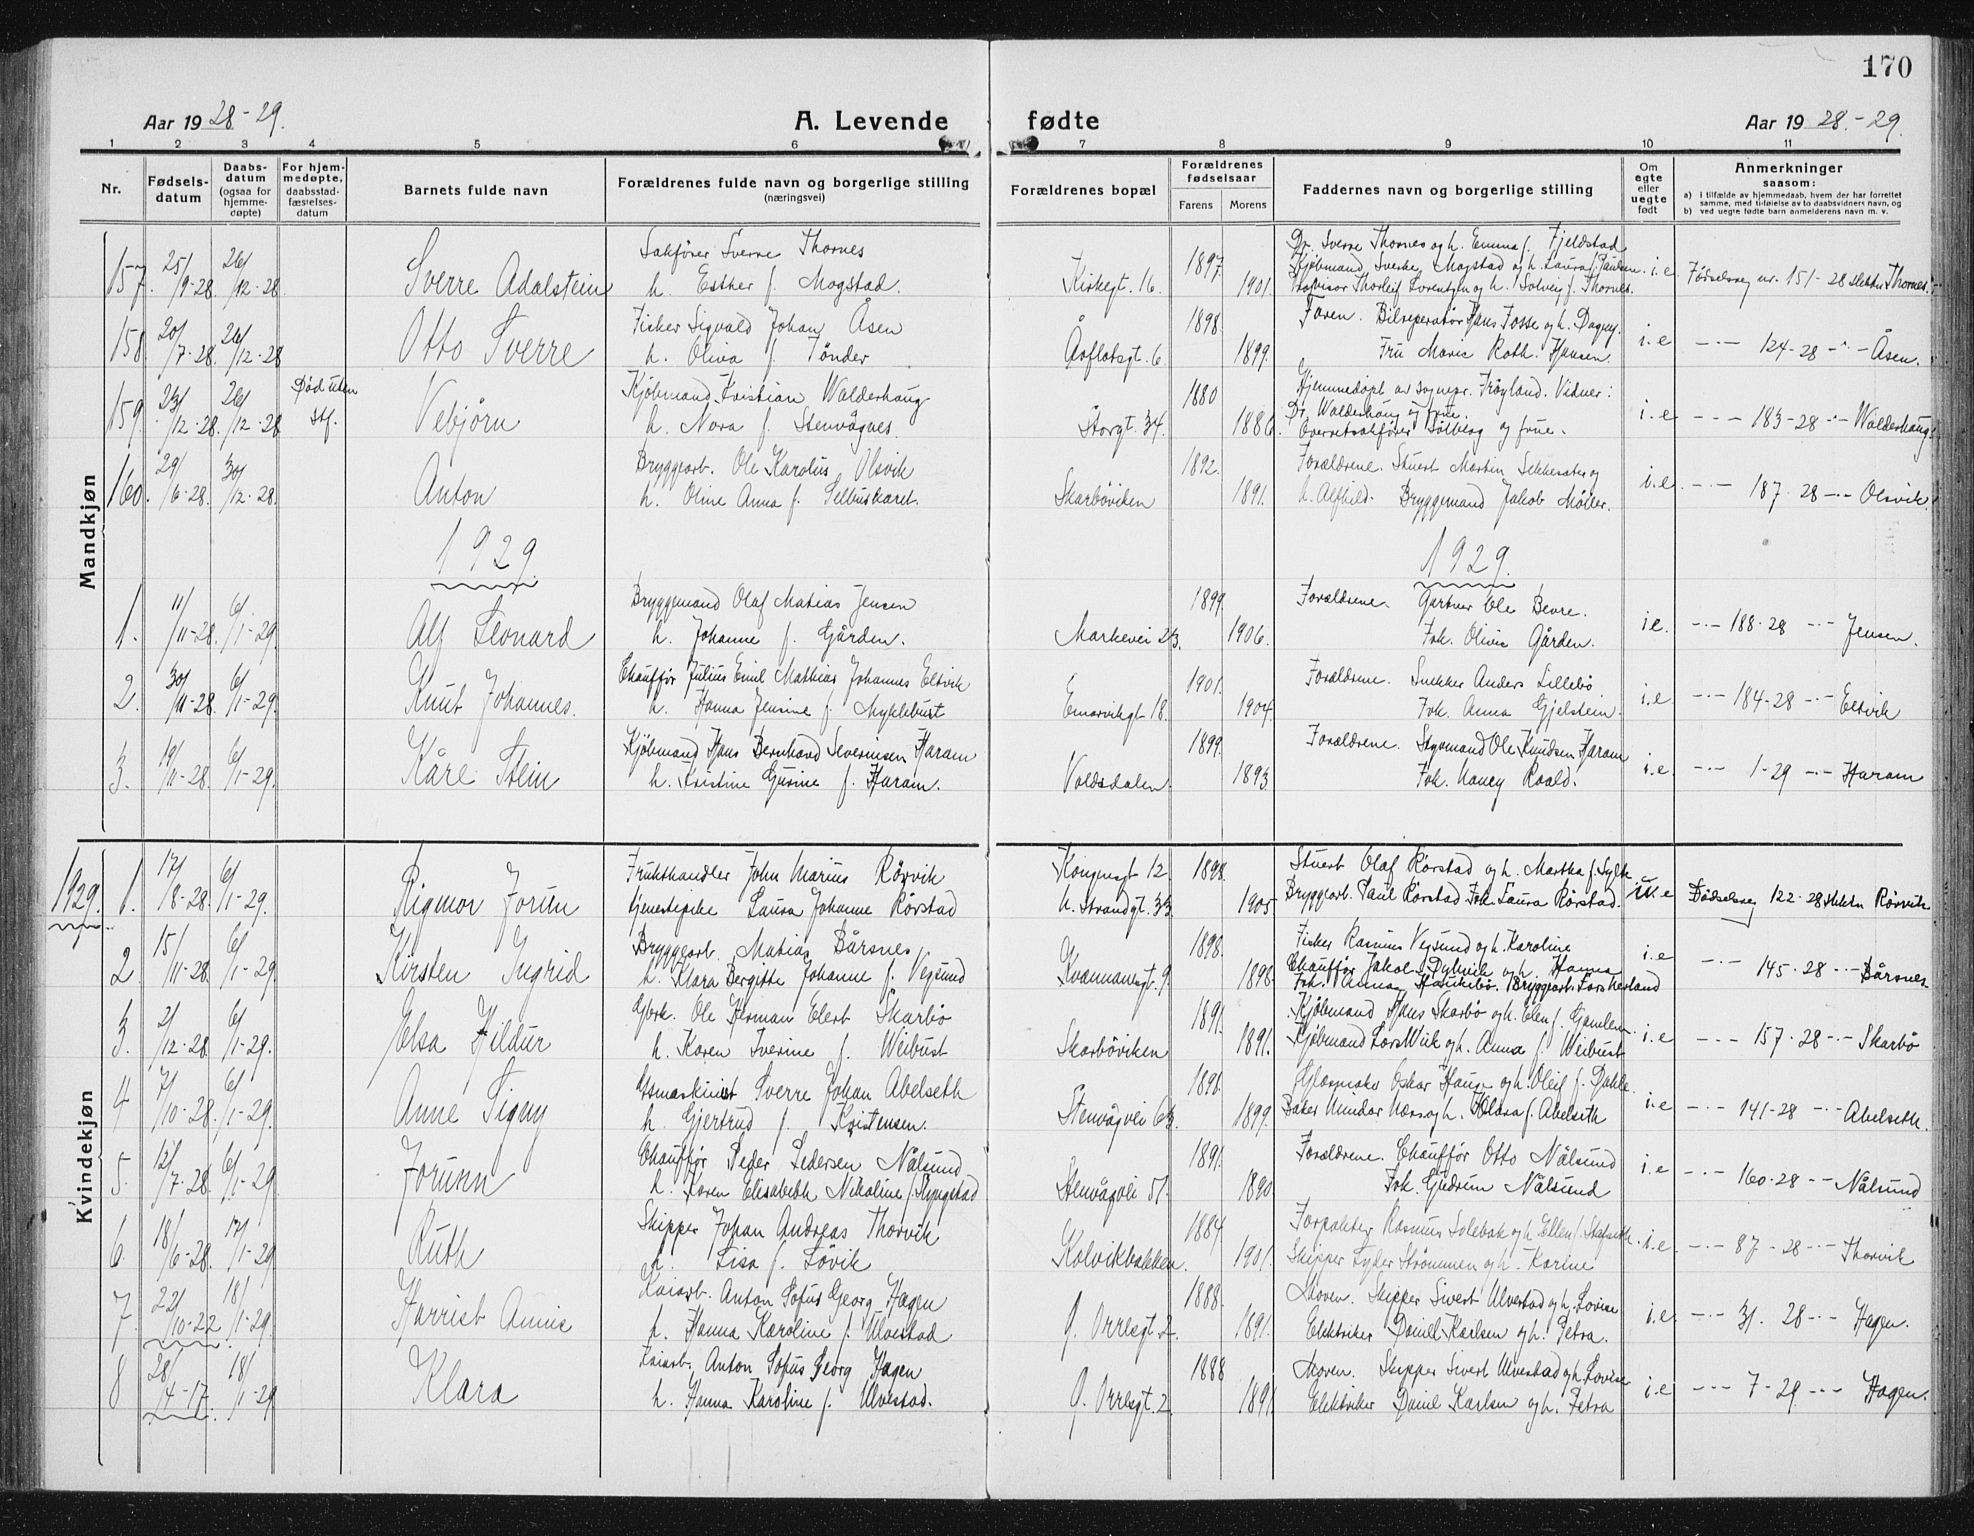 170
Aar 19 28-29. A. Levende fødte Aar 19 28.-29.
1 2 3 4 5 6 7 8 9 10 11
Nr.
Fødsels-
datum
Daabs-
datum
(ogsaa for
hjemme-
døpte)
For hjem-
medøpte,
daabsstad-
fæstelses-
datum
Barnets fulde navn
Forældrenes fulde navn og borgerlige stilling
(næringsvei)
Forældrenes bopæl
Forældrenes
fødselsaar
Farens Morens
Faddernes navn og borgerlige stilling
Om
egte
eller
uegte
født
Anmerkninger
saasom:
a) i tilfælde av hjemmedaab, hvem der har forrettet
samme, med tilføielse av to daabsvidners navn, og
b) ved uegte fødte barn anmelderens navn m. v.
Mandkjøn
157. 25/9-28. 26/12-28 Sverre Adalstein
Sakfører Sverre Thornes
h. Esther f. Mogstad.
Kirkegt. 16. 1897. 1901.
Dr. Sverre Thornes og h. Emma f. Fjeldstad
Kjøbmand Sverke Mogstad og h. Laura f. Paulsen
Provisor Thorleif Lorentzen og h. Solveig f. Thornes.
i.e. Fødselsreg nr. 151-28 Thornes.
158 20/7-28. 26/12-28 Otto Sverre
Fisker Sigvald Johan Åsen
h. Oliva f. Tønder
Åsflotsgt. 6. 1898. 1899.
Faren. Bilreperatør Hans Fosse og h. Dagny.
Fru Marie Roth. Hansen.
i.e -"- 124-28 -"- Åsen.
159 23/12-28. 26/12-28 Død uten stf. Vebjørn
Kjøbmand Kristian Walderhaug
h. Nora f. Stenvågnes.
Storgt. 34. 1880 1886.
Hjemmedøpt av sognepr. Frøyland. Vidner:
Dr. Walderhaug og frue.
Overretssakfører Solberg og frue.
i.e -"- 183-28 -"- Walderhaug
160. 29/6-28. 30/12-28. Anton
Bryggearb. Ole Karolus Olsvik
h. Oline Anna f. Selbuskaret.
Skarbøviken 1892. 1891.
Forældrene. Stuert Martin og
h. Alfhild. Bryggemand Jakob Møller.
i.e -"- 187-28 -"- Olsvik.
1929 1929.
1. 11/11-28. 6/1-29. Alf Leonard
Bryggemand Olaf Matias Jensen
h. Johanne f. Gården.
Markevei 23. 1899. 1906.
Forældrene. Gartner Ole Bevre.
Frk. Olivie Gården.
i.e. -"- 188-28 -"- Jensen.
2. 30/11-28. 6/1-29. Knut Johannes.
Chauffør Julius Emil Mathias Johannes Eltvik
h. Hanna Jensine f. Myklebust
Einarvikgt 18. 1901. 1904.
Forældrene. Snekker Anders Lillebø.
Frk. Anna Gjelstein.
i.e -"- 184-28 -"- Eltvik
3. 19/11-28. 6/1-29. Kåre Stein
Kjøbmand Hans Bernhard Severinsen Haram
h. Kristine Gurine f. Haram.
Voldsdalen. 1899. 1893.
Forældrene. Styrmand Ole Knudsen Haram
Frk. Nancy Roald.
i.e -"- 1-29 -"- Haram
Kvindekjøn
1929. 1. 17/8-28. 6/1-29. Rigmor Jorun
Frukthandler John Marius Rørvik
tjenestepike Laura Johanne Rørstad
Kongensgt 12
h. Strandgt. 33. 1898. 1905.
Stuert Olaf Rørstad og h. Martha f. Sylte
Bryggearb. Paul Rørstad Frk. Laura Rørstad.
Fødselsreg 122-28 Rørvik
2 15/11-28. 6/1-29. Kirsten Ingrid
Bryggearb. Matias Bårsnes
h. Klara Bergitte Johanne f. Vejsund
9. 1898. 1898.
Fisker Rasmus Vejsund og h. Karoline
Chauffør Jakob og h. Hanna
i.e -"- 145-28 -"- Bårsnes.
3. 2/12-28. 6/1-29. Elsa Hildur
Gbrk. Ole Herman Elert Skarbø
h. Karen Iverine f. Weibust
Skarbøviken 1891. 1891.
Kjøbmand Hans Skarbø og h. Elen f. Gamlem
Kjøbmand Lars Wiik og h. Anna f. Weibust
i.e -"- 157-28 -"- Skarbø
4 7/10-28. 6/1-29. Anne Signy
Sverre Johan Abelseth
h. Gjertrud f. Kristensen.
Stenvågvei 63. 1898. 1899.
Oskar Hauge og h. Oleif f. Dahle.
Baker og h. Klara f. Abelseth
i.e -"- 141-28 -"- Abelseth.
5. 12/7-28. 6/1-29 Jorunn
Chauffør Peder Pedersen Nålsund
h. Karen Elisabeth Nikoline f. Ryngstad
Stenvågvei 51. 1891. 1890.
Forældrene. Chauffør Otto Nålsund
Frk. Gudrun Nålsund
i.e -"- 160-28 -"- Nålsund
6. 18/6-28. 17/1-29 Ruth
Skipper Johan Andreas Thorvik
h. Lisa f. Løvik
Kolvikbakken. 1884. 1901.
Forpakter Rasmus Solebak og h. Ellen f.
Skipper Strømmen og h. Karine
i.e. -"- 87-28 -"- Thorvik
7. 22/10-22 18/1-29. Harriet Annie
Kaiarb. Anton Sofus Georg Hagen
h. Hanna Karoline f. Ulvestad
Ø. Orresgt 2. 1888. 1891.
Moren. Skipper Sivert Ulvestad og h. Lovise
Elektriker Daniel Karlsen og h. Petra.
i.e. -"- 31. 28 -"- Hagen.
8 28/4-17. 18/1-29 Klara
Kaiarb. Anton Sofus Georg Hagen
h. Hanna Karoline f. Ulvestad.
Ø. Orresgt. 2. 1888 1891.
Moren. Skipper Sivert Ulvestad og h. Lovise
Elektriker Daniel Karlsen og h. Petra
i.e -"- 7-29. -"- Hagen.